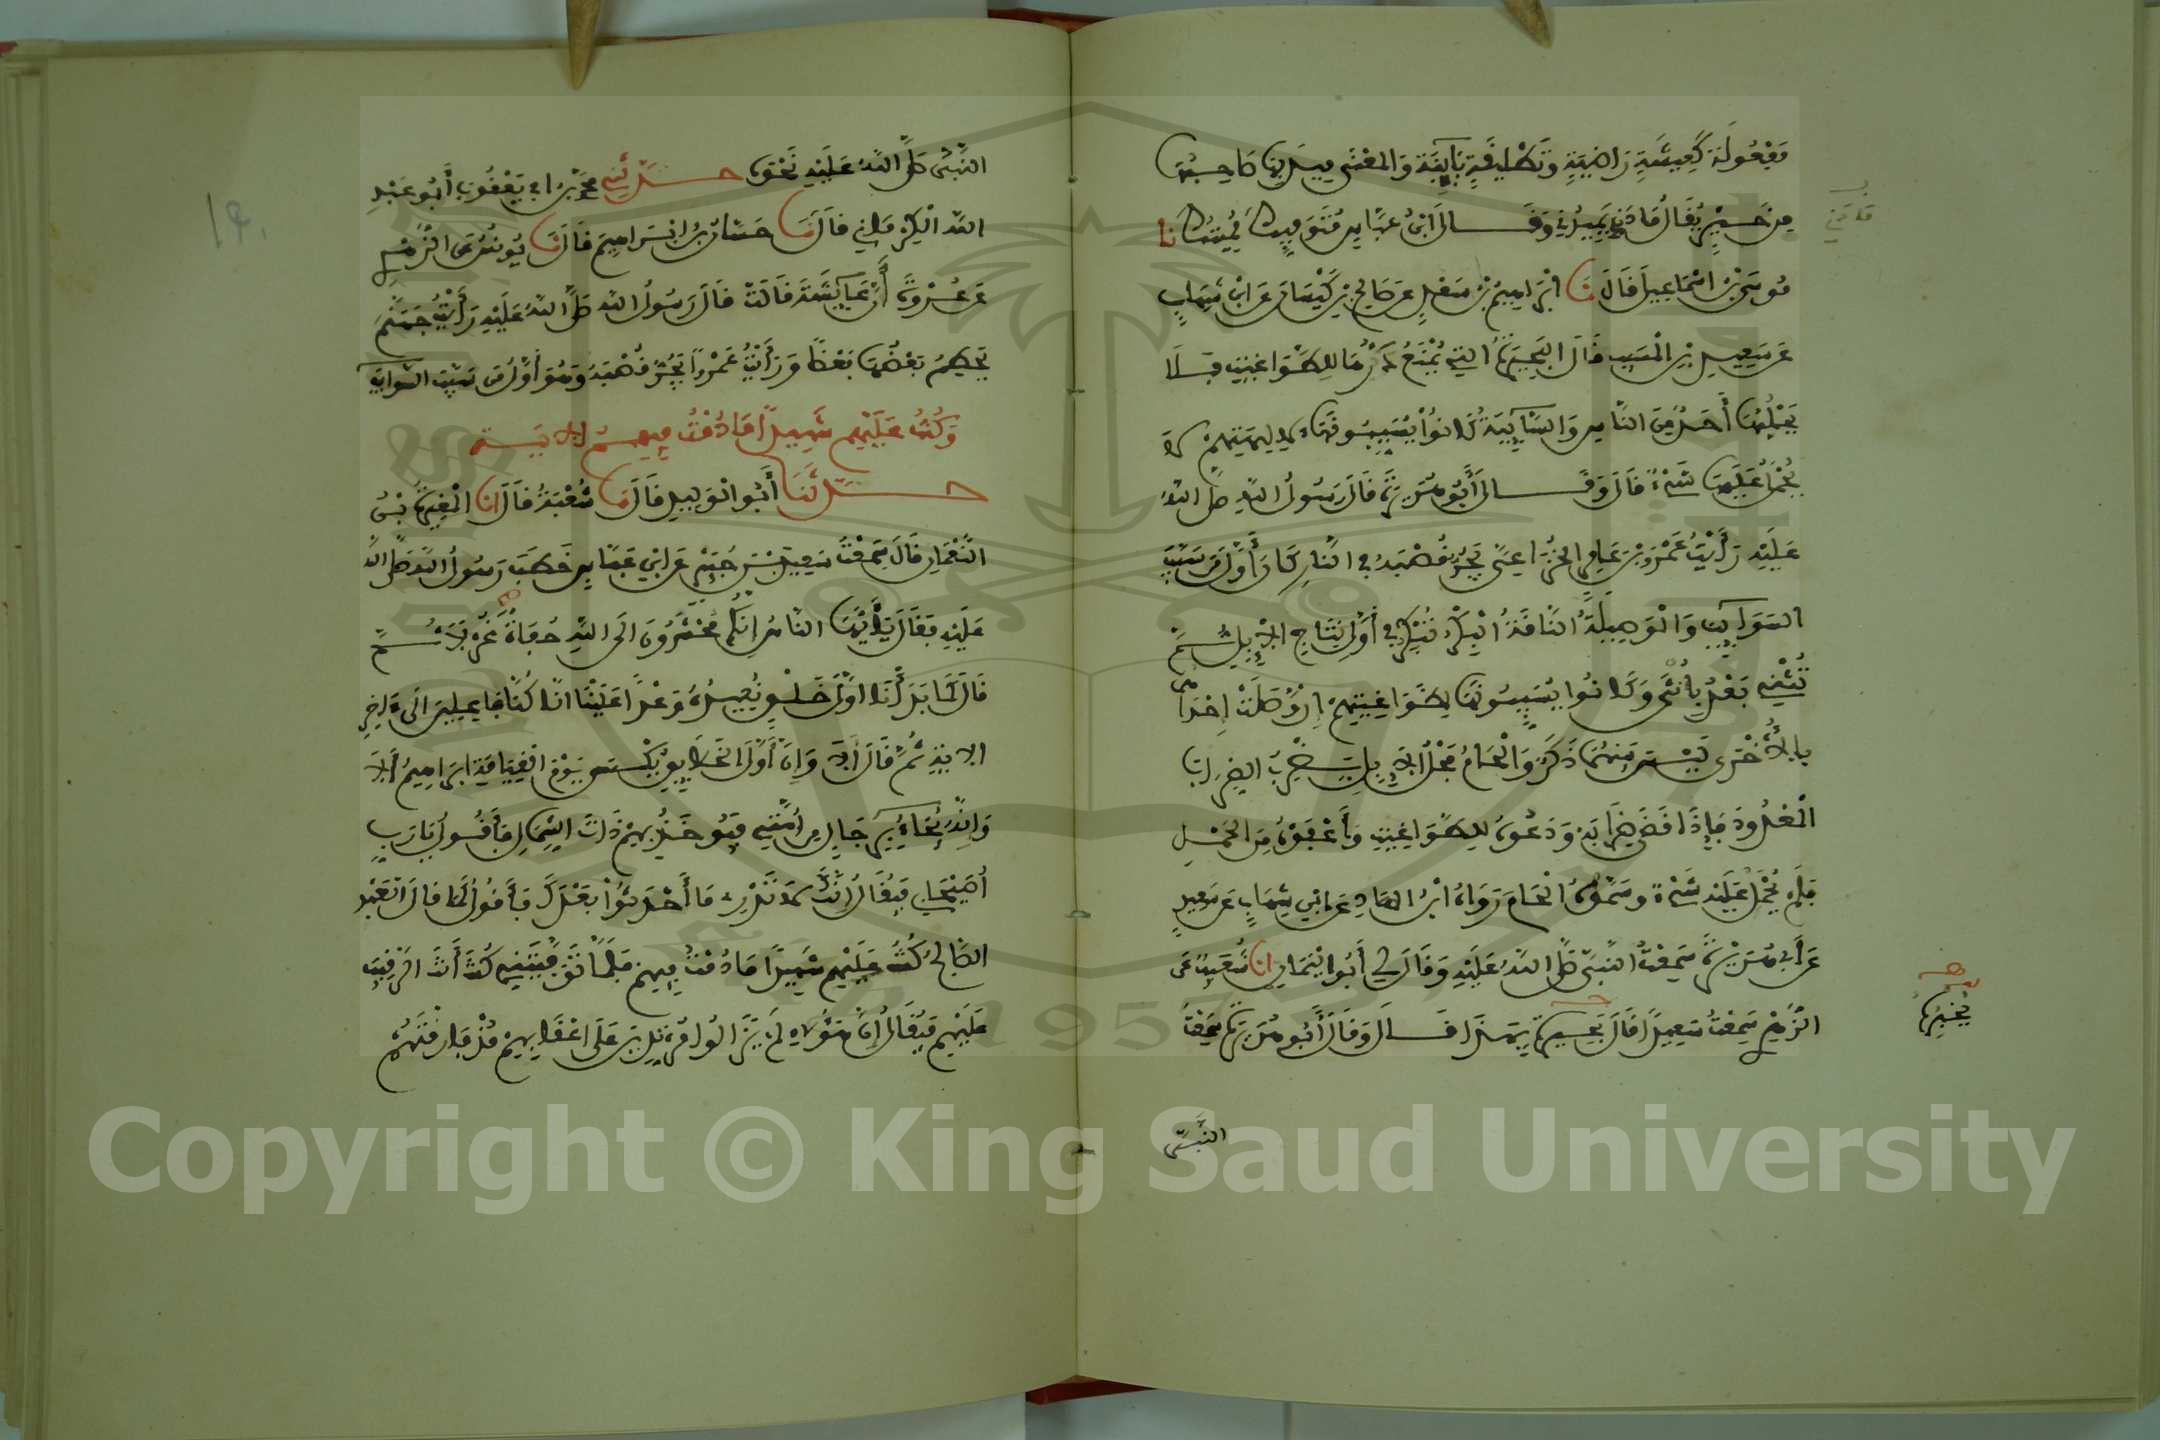 مَفْعُولَة كَعِيشَةٍ رَاضِيَةٍ وَتَطْلِيقَةٍ بَائِنَةٍ وَالمَعْنَى مِيدَ بِهَا صَاحِبُهَا
مِنْ خَيْرٍ يُقَالُ مَادَنِي يَمِيدُنِي وَقَالَ ابْنُ عَبَّاسٍ مُتَوَفِّيكَ مُمِيتُكَ نا
مُوسَى بْنُ اسْمَاعِيلَ قَالَ نَا ابْرَاهِيمُ بْنُ سَعْدٍ عَن صَالِحِ بْنِ كَيْسَانَ عَن ابْنِ شِهَابٍ
عَن سَعِيدِ بْنِ الْمُسَيِّبِ قَالَ الْبَحِيرَةُ الَّتِي يُمْنَعُ دَرُّهَا لِلطَّوَاغِيتِ فَلَا
يَحْلُبُهَا أَحَدٌ مِنَ النَّاسِ وَالسَّائِبَةُ كَانُوا يُسَيِّبُونَهَا لِآلِهَتِهِمْ لَا
يُحْمَلُ عَلَيْهَا شَيْءٌ قَالَ وَقَالَ أَبُو هُرَيْرَةَ قَالَ رَسُولُ اللهِ صَلَّى اللهُ
عَلَيْهِ رَأَيْتُ عَمْرَو بْنَ عَامِرٍ الخُزَاعِيَّ يَجُرُّ قُصْبَهُ فِي النَّارِ كَانَ أَوَّلَ مَن سَيَّبَ
السَّوَائِبَ وَالْوَصِيلَةُ النَّاقَةُ الْبِكْرُ تُبَكِّرُ فِي أَوَّلِ نِتَاجِ الإِبِلِ ثُمَّ
تُثَنِّي بَعْدُ بِأُنْثَى وَكَانُوا يُسَيِّبُونَهَا لِطَوَاغِيتِهِمْ إِنْ وَصَلَتْ إِحْدَاهُمَا
بِالأُخْرَى لَيْسَ بَيْنَهُمَا ذَكَرٌ وَالْحَامُ فَحْلُ الإِبِلِ يَضْرِبُ الضِّرَابَ
الْمَعْدُودَ فَإِذَا قَضَى ضِرَابَهُ وَدَعُوهُ لِلطَّوَاغِيتِ وَأَعْفَوْهُ مِنَ الحَمْلِ
فَلَمْ يُحْمَلْ عَلَيْهِ شَيْءٌ وَسَمَّوْهُ الْحَامَ رَوَاهُ ابْنُ الهَادِ عَن ابْنِ شِهَابٍ عَن سَعِيدٍ
عَن أَبِي هُرَيْرَةَ سَمِعْتُ النَّبِيَّ صَلَّى اللهُ عَلَيْهِ وَقَالَ لِي أَبُو الْيَمَانِ انا شُعَيْبٌ عَن
الزُّهْرِيِّ سَمِعْتُ سَعِيدًا قَالَ بَحِيرَةٌ بِهَذَا قَالَ وَقَالَ أَبُو هُرَيْرَةَ سَمِعْتُ
يُخْبِرُهُ
النَّبِيَّ
النَّبِيَّ صَلَّى اللهُ عَلَيْهِ نَحْوَهُ حَدَّثَنِي مُحَمَّدُ بْنُ أَبِي يَعْقُوبَ أَبُو عَبْدِ
اللهِ الْكِرْمَانِي قَالَ نَا حَسَّانُ بْنُ ابْرَاهِيمَ قَالَ نَا يُونُسُ عَن الزُّهْرِيِّ
عَن عُرْوَةَ أَنَّ عَائِشَةَ قَالَتْ قَالَ رَسُولُ اللهِ صَلَّى اللهُ عَلَيْهِ رَأَيْتُ جَهَنَّمَ
يَحْطِمُ بَعْضُهَا بَعْضًا وَرَأَيْتُ عَمْرًا يَجُرُّ قُصْبَهُ وَهُوَ أَوَّلُ مَن سَيَّبَ السَّوَائِبَ
وَكُنْتُ عَلَيْهِمْ شَهِيدًا مَا دُمْتُ فِيهِمْ الايَـة
حَدَّثَنَا أَبُو الْوَلِيدِ قَالَ نَا شُعْبَةُ قَالَ انا الْمُغِيرَةُ بْنُ
النُّعْمَانِ قَالَ سَمِعْتُ سَعِيدَ بْنَ جُبَيْرٍ عَن ابْنِ عَبَّاسٍ خَطَبَ رَسُولُ اللهِ صَلَّى اللهُ
عَلَيْهِ فَقَالَ يَا أَيُّهَا النَّاسُ إِنَّكُمْ مَحْشُورُونَ الَى اللهِ حُفَاةً عُرَاةً ثُمَّ
قَالَ كَمَا بَدَأْنَا أَوَّلَ خَلْقٍ نُعِيدُهُ وَعْدًا عَلَيْنَا انَّا كُنَّا فَاعِلِينَ الَى آخِرِ
الايَةِ ثُمَّ قَالَ أَلَا وَإِنَّ أَوَّلَ الخَلَائِقِ يُكْسَى يَوْمَ الْقِيَامَةِ ابْرَاهِيمُ أَلَا
وَانَّهُ يُجَاءُ بِرِجَالٍ مِنْ أُمَّتِي فَيُؤْخَذُ بِهِمْ ذَاتَ الشِّمَالِ فَأَقُولُ يَا رَبِّ
أُصَيْحَابِي فَيُقَالُ إِنَّكَ لَا تَدْرِي مَا أَحْدَثُوا بَعْدَكَ فَأَقُولُ كَمَا قَالَ الْعَبْدُ
الصَّالِحُ كُنْتُ عَلَيْهِمْ شَهِيدًا مَا دُمْتُ فِيهِمْ فَلَمَّا تَوَفَّيْتَنِي كُنْتَ أَنْتَ الرَّقِيبَ
عَلَيْهِمْ فَيُقَالُ إِنَّ هَؤُلَاءِ لَمْ يَزَالُوا مُرْتَدِّينَ عَلَى اعْقَابِهِمْ مُنْذُ فَارَقْتَهُمْ